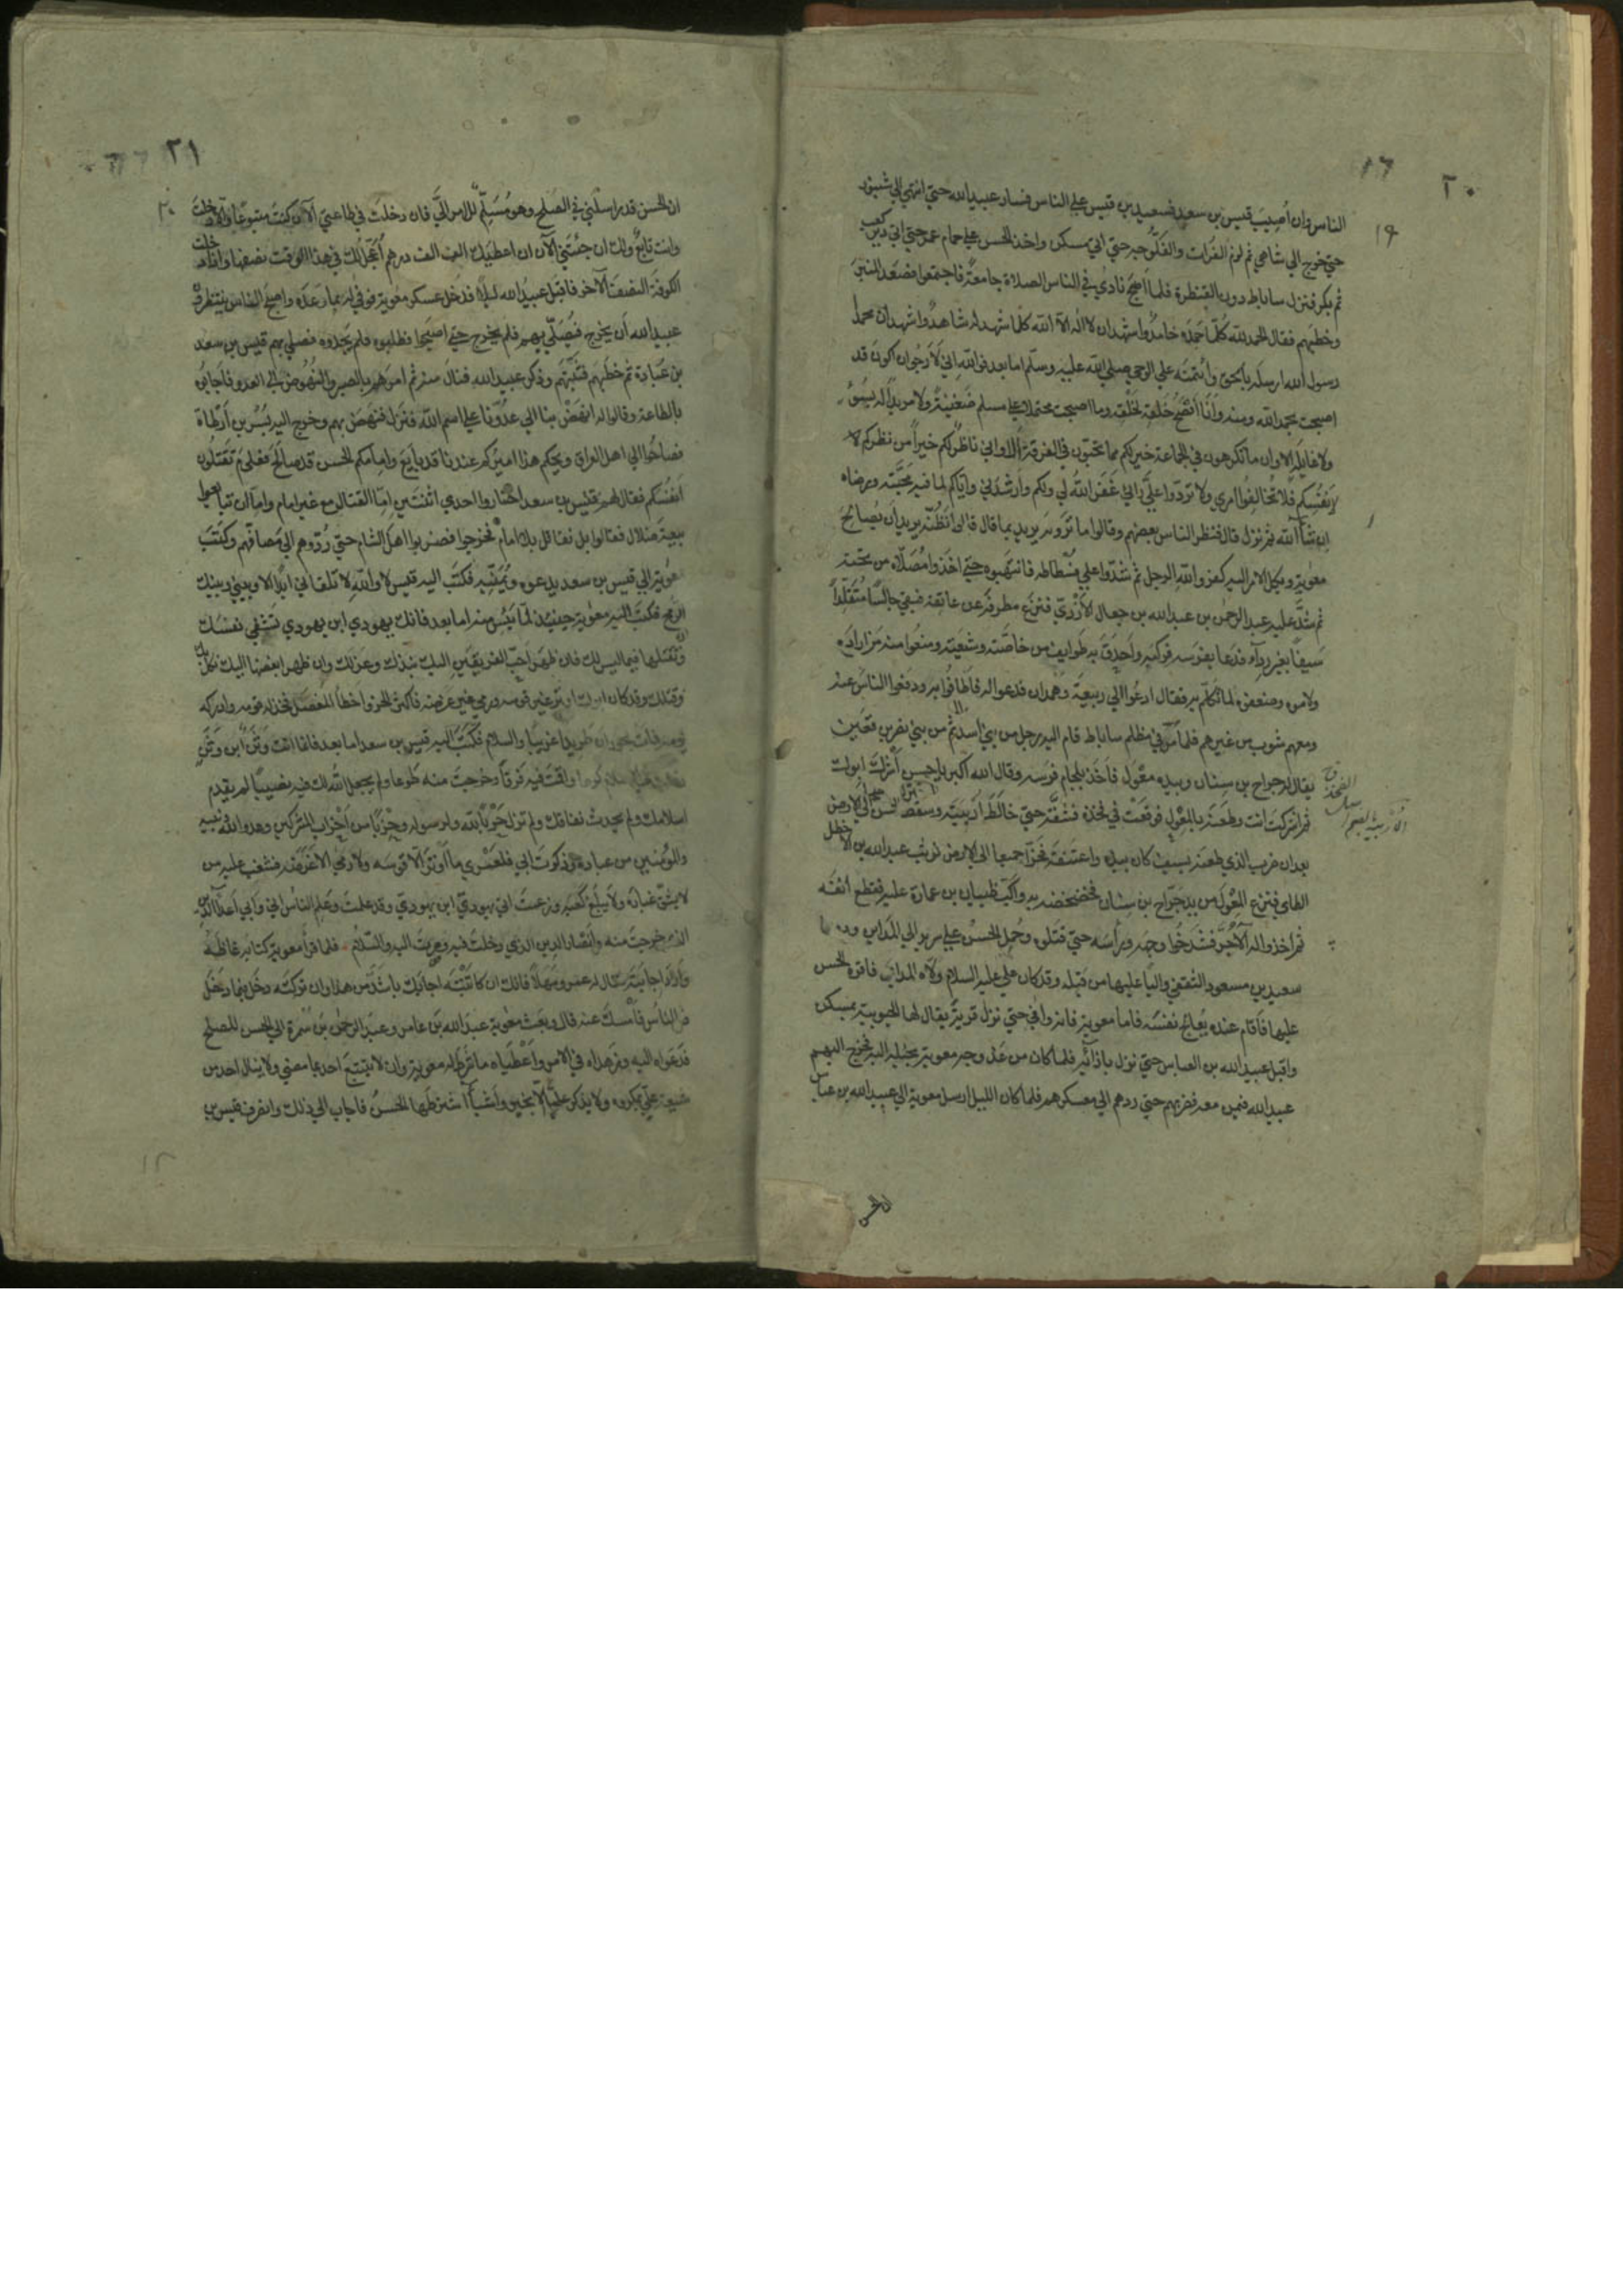 ٢٠
١٩
الناس وان اُصِيبَ قيس بن سعد فسعيد بن قيس علي الناس فسار عبيد الله حتي انتهي الي شينور
حتي خرج الي شاهي ثم لزم الفرات والفلوجه حتي اتي مسكن واخذ الحسن علي حمام عمر حتي اتي دير كعب
ثم بكر فنزل ساباط دون القنطرة فلما اصبح نادي في الناس الصلاة جامعة فاجتمعوا فصعد المنبر
وخطبهم فقال الحمد لله كلما حمده حامد واشهد ان لا اله الا الله كلما شهد له شاهد واشهد ان محمدا
رسول الله ارسله بالحق وائتمنه علي الوحي صلي الله عليه وسلم اما بعد فوالله اني لارجوا ان اكون قد
اصبحت بحمد الله ومنه وانا انصح خلقه لخلقه وما اصبحت محتملا علي مسلم ضغينة ولا مريدا له بسوء
ولا غايلة الا وان ما تكرهون في الجماعة خير لكم مما تحبون في الفرقة الا واني ناظر لكم خيرا من نظركم لا
لانفسكم فلا تخالفوا امري ولا تردوا علي رايي غفر الله لي ولكم وارشدني واياكم لما فيه محبته ورضاه
ان شاء الله ثم نزل قال فنظر الناس بعضهم وقالوا ما ترونه يريد بما قال قالوا نظنه يريد ان يصالح
معوية ويكل الامر اليه كفر والله الرجل ثم شدوا علي فسطاطه فانتهبوه حتي اخذوا مصلاه من تحته
ثم شد عليه عبد الرحمن بن عبد الله بن جعال الازدي فنزع مطرفه عن عاتقه فبقي جالسا متقلدا
سيفا بغير رداء فدعا بفرسه فركبه واحدق به طوايف من خاصته وشيعته ومنعوا منه من اراده
ولاموه وضعفوه لما تكلم به فقال ادعوا الي ربيعة وهمدان فدعوا له فاطافوا به ودفعوا الناس عنه
ومعهم شوب من غيرهم فلما مر في مظلم ساباط قام اليه رجل من بني اسد ثم من بني نصر بن قعين
يقال له جراح بن سنان وبيده مغول فاخذ بلجام فرسه وقال الله اكبر يا حسن اشرك ابوك
ثم اشركت انت وطعنه بالمغول فوقعت في فخذه فشقته حتي خالط اربيته وسقط الحسن الي الارض
بعد ان ضرب الذي طعنه بسيف كان بيده واعتنقه فخرا جميعا الي الارض فوثب عبد الله بن الاخطل
الطاي فنزع المغول من يد جراح بن سنان فخضخضه به واكب ظبيان بن عمارة عليه فقطع انفه
ثم اخذوا له الاجر فشدخوا وجهه وراسه حتي قتلوه وحمل الحسن علي سرير الي المداين
سعيد بن مسعود الثقفي واليا عليها من قبله وقد كان علي عليه السلام ولاه المداين فاقره الحسن
عليها فاقام عنده يعالج نفسه فاما معوية فانه وافي حتي نزل قرية يقال لها الحبوبية بمسكن
واقبل عبيد الله بن العباس حتي نزل بازائه فلما كان من غد وجه معوية بخيله اليه فخرج اليهم
عبيد الله فيمن معه فضربهم حتي ردهم الي معسكرهم فلما كان الليل ارسل معوية الي عبيد الله بن عباس
ان الحسن
٢١
٢٠
ان الحسن قد راسلني في الصلح وهو مسلم الامر الي فان دخلت في طاعتي الآن كنت متبوعا والا دخلت
وانت تابع ولك ان جئتني الآن ان اعطيك الف الف درهم اعجل لك في هذا الوقت نصفها واذا دخلت
الكوفة النصف الآخر فاقبل عبيد الله ليلا فدخل عسكر معوية فوفي له بما وعده واصبح الناس ينتظرون
عبيد الله ان يخرج فيصلي بهم فلم يخرج حتي اصبحوا فطلبوه فلم يجدوه فصلي بهم قيس بن سعد
بن عبادة ثم خطبهم فثبتهم وذكر عبيد الله فنال منه ثم امرهم بالصبر والنهوض الي العدو فاجابوه
بالطاعة وقالوا له انهض بنا الي عدونا علي اسم الله فنزل فنهض بهم وخرج اليه بسر بن ارطاة
فصاحوا الي اهل العراق ويحكم هذا اميركم عندنا قد بايع وامامكم الحسن قد صالح فعلي م تقتلون
انفسكم فقال لهم قيس بن سعد اختاروا احدي اثنتين اما القتال مع غير امام واما ان تبايعوا
بيعة ضلال فقالوا بل نقاتل بلا امام فخرجوا فضربوا اهل الشام حتي ردوهم الي مصافهم وكتب
معوية الي قيس بن سعد يدعوه ويمنيه فكتب اليه قيس لا والله لا تلقاني ابدا الا وبيني وبينك
الرمح فكتب اليه معوية حينئذ لما يئس منه اما بعد فانك يهودي ابن يهودي تشقي نفسك
وتقتلها فيما ليس لك فان ظهر احب الفريقين اليك نبذك وعزلك وان ظهر ابغضهما اليك نكل بك
وقتلك وقد كان ابوك اوتر غير قوسه ورمي غير غرضه فاكثر الحز واخطا المفصل فخذله قومه وادركه
يومه فمات بحوران طريدا غريبا والسلام فكتب اليه قيس بن سعد اما بعد فانما انت وثن ابن وثن
دخلت في الاسلام كرها واقمت فيه فرقا وخرجت منه طوعا ولم يجعل الله لك فيه نصيبا لم يقدم
اسلامك ولم يحدث نفاقك ولم تزل حربا لله ولرسوله وحزبا من احزاب المشركين وعدو الله ونبيه
والمؤمنين من عباده وذكرت ابي فلعمري ما اوتر الا قوسه ولا رمي الا غرضه فشغب عليه من
لا يشق غباره ولا يبلغ كعبه وزعمت اني يهودي ابن يهودي وقد علمت وعلم الناس اني وابي اعداء الدين
الذي خرجت منه وانصار الدين الذي دخلت فيه وصرت اليه والسلام فلما قرا معوية كتابه غاظه
واراد اجابته فقال له عمرو مهلا فانك ان كاتبته اجابك باشد من هذا وان تركته دخل فيما دخل
فيه الناس فامسك عنه قال وبعث معوية عبد الله بن عامر وعبد الرحمن بن سمرة الي الحسن للصلح
فدعواه اليه وزهداه في الامر واعطياه ما شرط له معوية وان لا يتبع احد بما مضي ولا ينال احد من
شيعة علي بمكروه ولا يذكر علي الا بخير واشياء اشترطها الحسن فاجاب الي ذلك وانصرف قيس بن